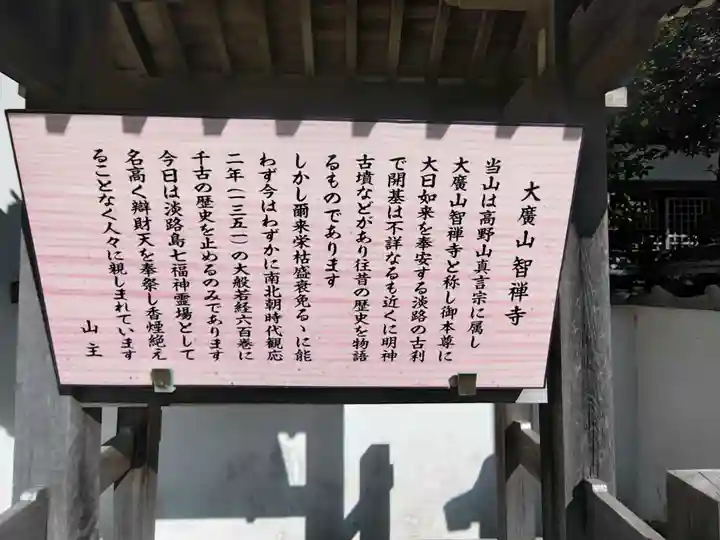 大廣山智禅寺
当山は高野山真言宗に属し
大廣山智禅寺と称し御本尊に
大日如来を奉安する淡路の古刹
で開基は不詳なるも近くに明神
古墳などがあり往昔の歴史を物語
るものであります
しかし爾来栄枯盛衰免るゝに能
わず今はわずかに南北朝時代観応
二年(一三五一)の大般若経六百巻に
千古の歴史を止めるのみであります
今日は淡路島七福神霊場として
名高く辯財天を奉祭し香煙絶え
ることなく人々に親しまれています
山主